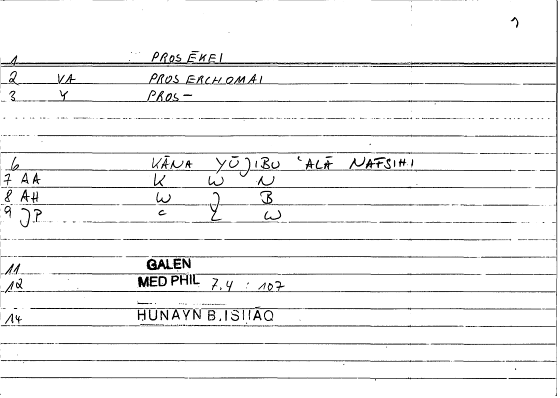 1 PROSĒKEI
2 VA PROSERCHOMAI
3 Y PROS-
6 KĀNA YŪJIBU ʿALĀ NAFSIHI
7 AA K W N
8 AH W J B
9 JP ʿ L W
11 GALEN
12 MED PHIL 7.4 : 107
14 ḤUNAYN B. ISḤĀQ